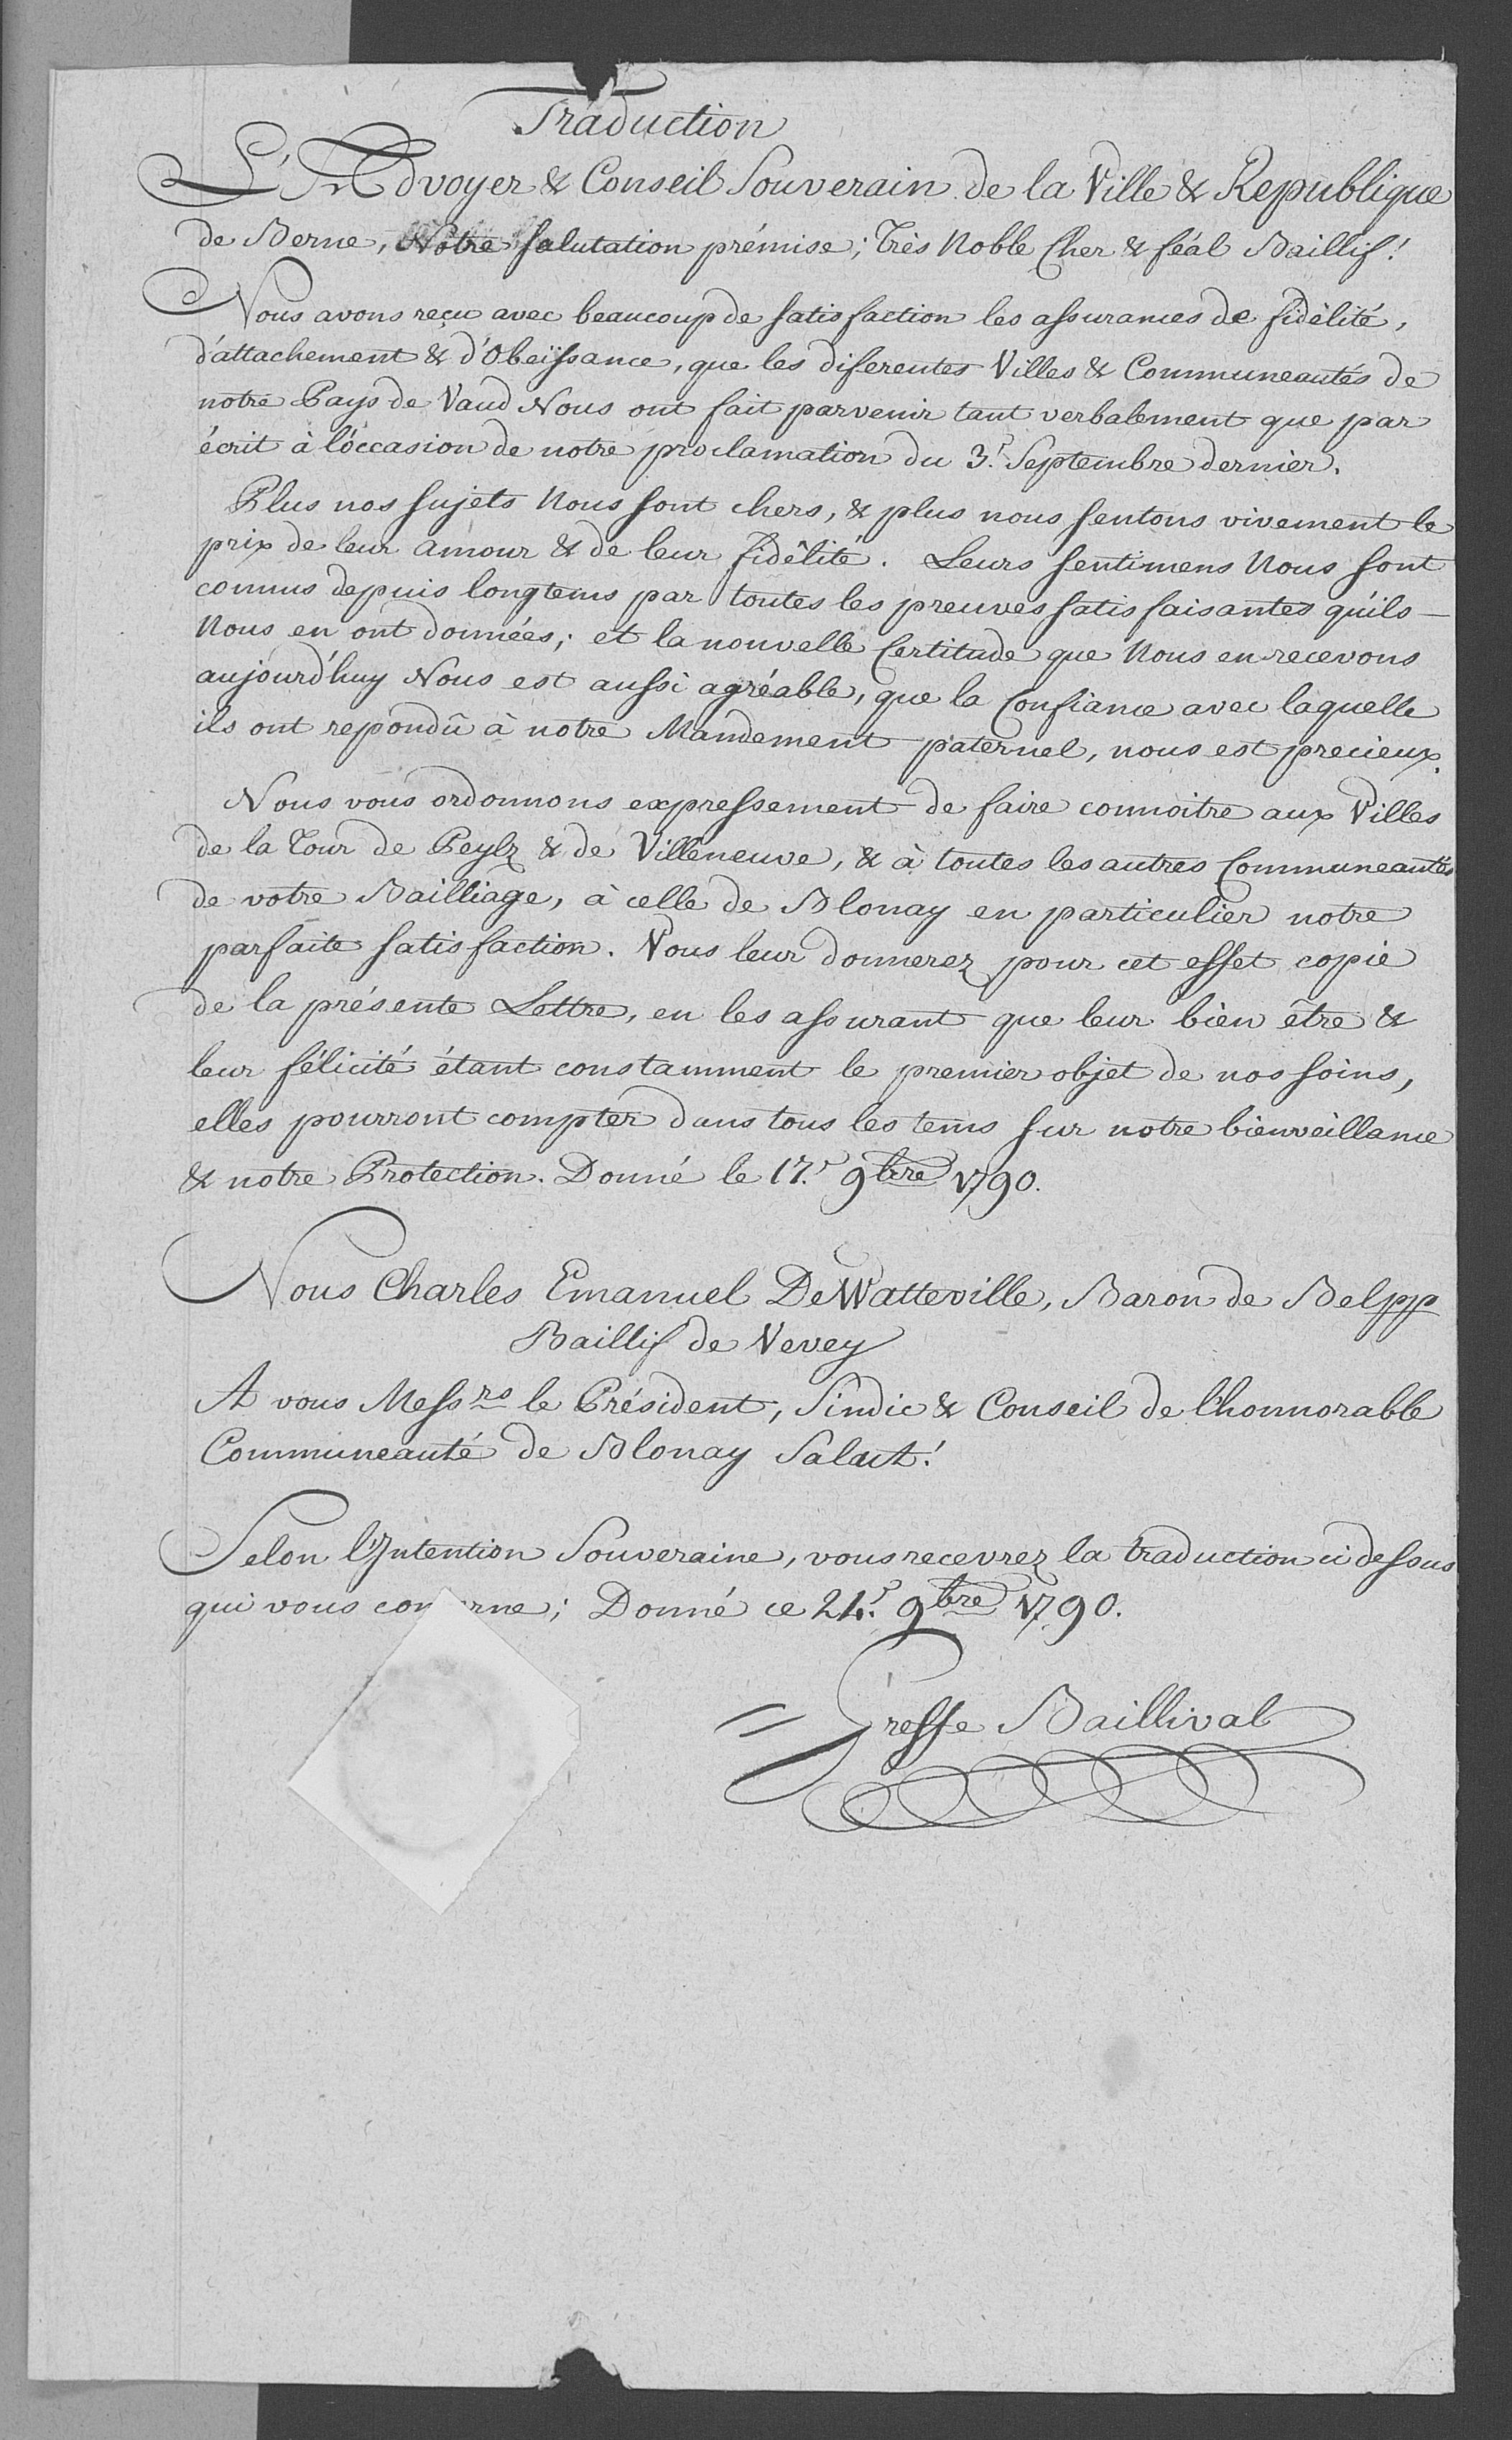 Traduction
L'Advoyer & Conseil Souverain de la Ville & Republique
de Berne, Notre salutation prémise; Très Noble Cher & féal Baillif!
Nous avons reçu avec beaucoup de satisfaction les assurances de fidélité,
d'attachement & d'Obeïssance, que les diferentes Villes & Communeautés de
notre Pays de Vaud Nous ont fait parvenir tant verbalement que par
écrit à l'occasion de notre proclamation du 3.e Septembre dernier.
Plus nos sujets Nous sont chers, & plus nous sentons vivement le
prix de leur amour & de leur fidélité. Leurs sentimens Nous sont
connus depuis longtems par toutes les preuves satisfaisantes qu'ils
Nous en ont données; et la nouvelle Certitude que Nous en recevons
aujourd'huy Nous est aussi agréable, que la Confiance avec laquelle
ils ont repondû à notre Mandement paternel, nous est precieux.
Nous vous ordonnons expressement de faire connoitre aux Villes
de la Tour de Peylz & de Villeneuve, & à toutes les autres Communeautés
de votre Bailliage, à celle de Blonay en particulier notre
parfaite satisfaction. Vous leur donnerez pour cet effet copie
de la présente Lettre, en les assurant que leur bien être &
leur félicité étant constamment le premier objet de nos soins,
elles pourront compter dans tous les tems sur notre bienveillance
& notre Protection. Donné le 17.e 9bre 1790.
Nous Charles Emanuel De Watteville, Baron de Belpp
Baillif de Vevey
A vous Messrs le Président, Sindic & Conseil de l'honnorable
Communeauté de Blonay Salut!
Selon l'Intention Souveraine, vous recevrez la traduction ci dessus
qui vous concerne; Donné ce 24.e 9bre 1790.
Greffe Baillival